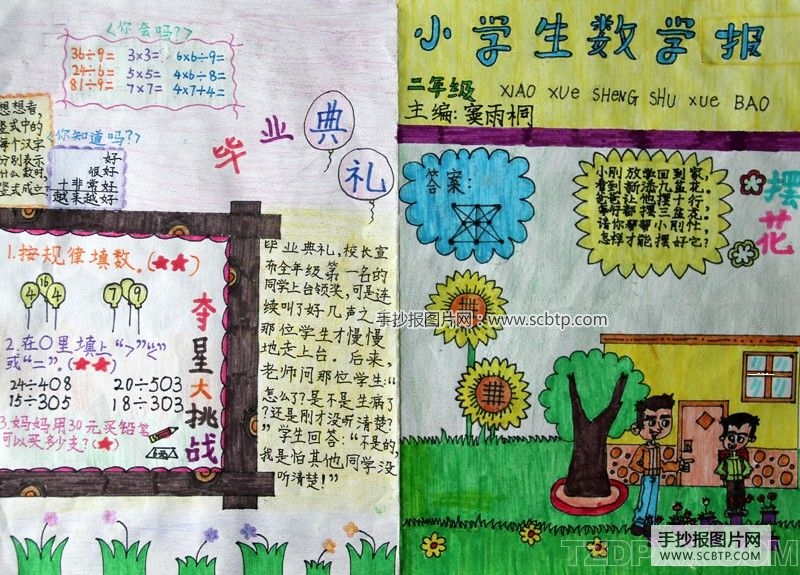 <你会吗?>
36÷9= 3×3= 6×6÷9=
24÷6= 5×5= 4×6÷8=
81÷9= 7×7= 4×7+4=
想想看,
竖式中的
每个汉字
分别表示
什么数时,
竖式成立?
<你知道吗?>
好
很好
十非常好
越来越好
毕业典礼
1.按规律填数。(★★)
4 16 4
7 9
2.在O里填上“>”“<”
或“=”。(★★)
24÷4O8 20÷5O3
15÷3O5 18÷3O3
3.妈妈用30元买铅笔
可以买多少支?(★)
夺星大挑战
毕业典礼,校长宣
布全年级第一名的
同学上台领奖,可是连
续叫了好几声之
那位学生才慢慢
地走上台。后来,
老师问那位学生:“
怎么了?是不是生病了
?还是刚才没听清楚?
”学生回答:“不是的,
我是怕其他同学没
听清楚!”
小学生数学报
二年级 XIAO XUE SHENG SHU XUE BAO
主编:窦雨桐
答案:
小刚放学回到家,
看到新添九盆花。
爸爸让他摆十行,
每行都摆三盆花。
请你帮帮小刚忙,
怎样才能摆好它?
摆花
手抄报图片网:www.scbtp.com
手抄报图片网
WWW.SCBTP.COM